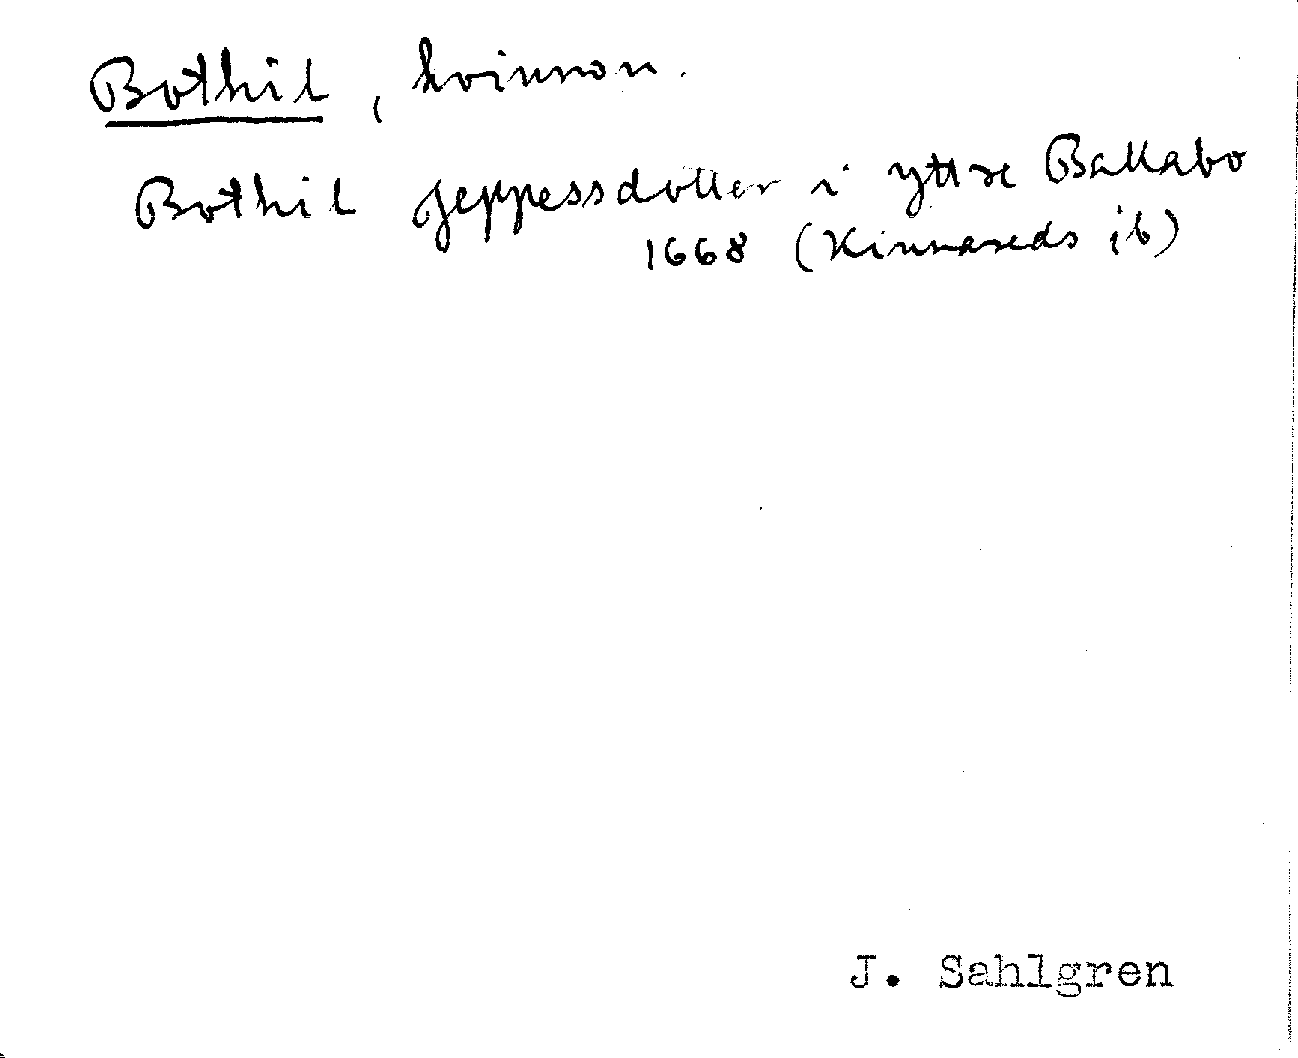 Bothil, kvinnon.
Bothil Jeppessdotter i yttre Ballabo
1668 (Kinnareds ib)
J. Sahlgren